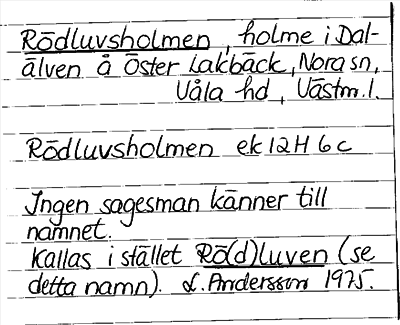 Rödluvsholmen, holme i Dal-
älven å Öster Lakbäck, Nora sn,
Våla hd, Västm. l.
Rödluvsholmen ek 12H 6c
Ingen sagesman känner till
namnet.
Kallas i stället Rö(d)luven (se
detta namn). L. Andersson 1975.